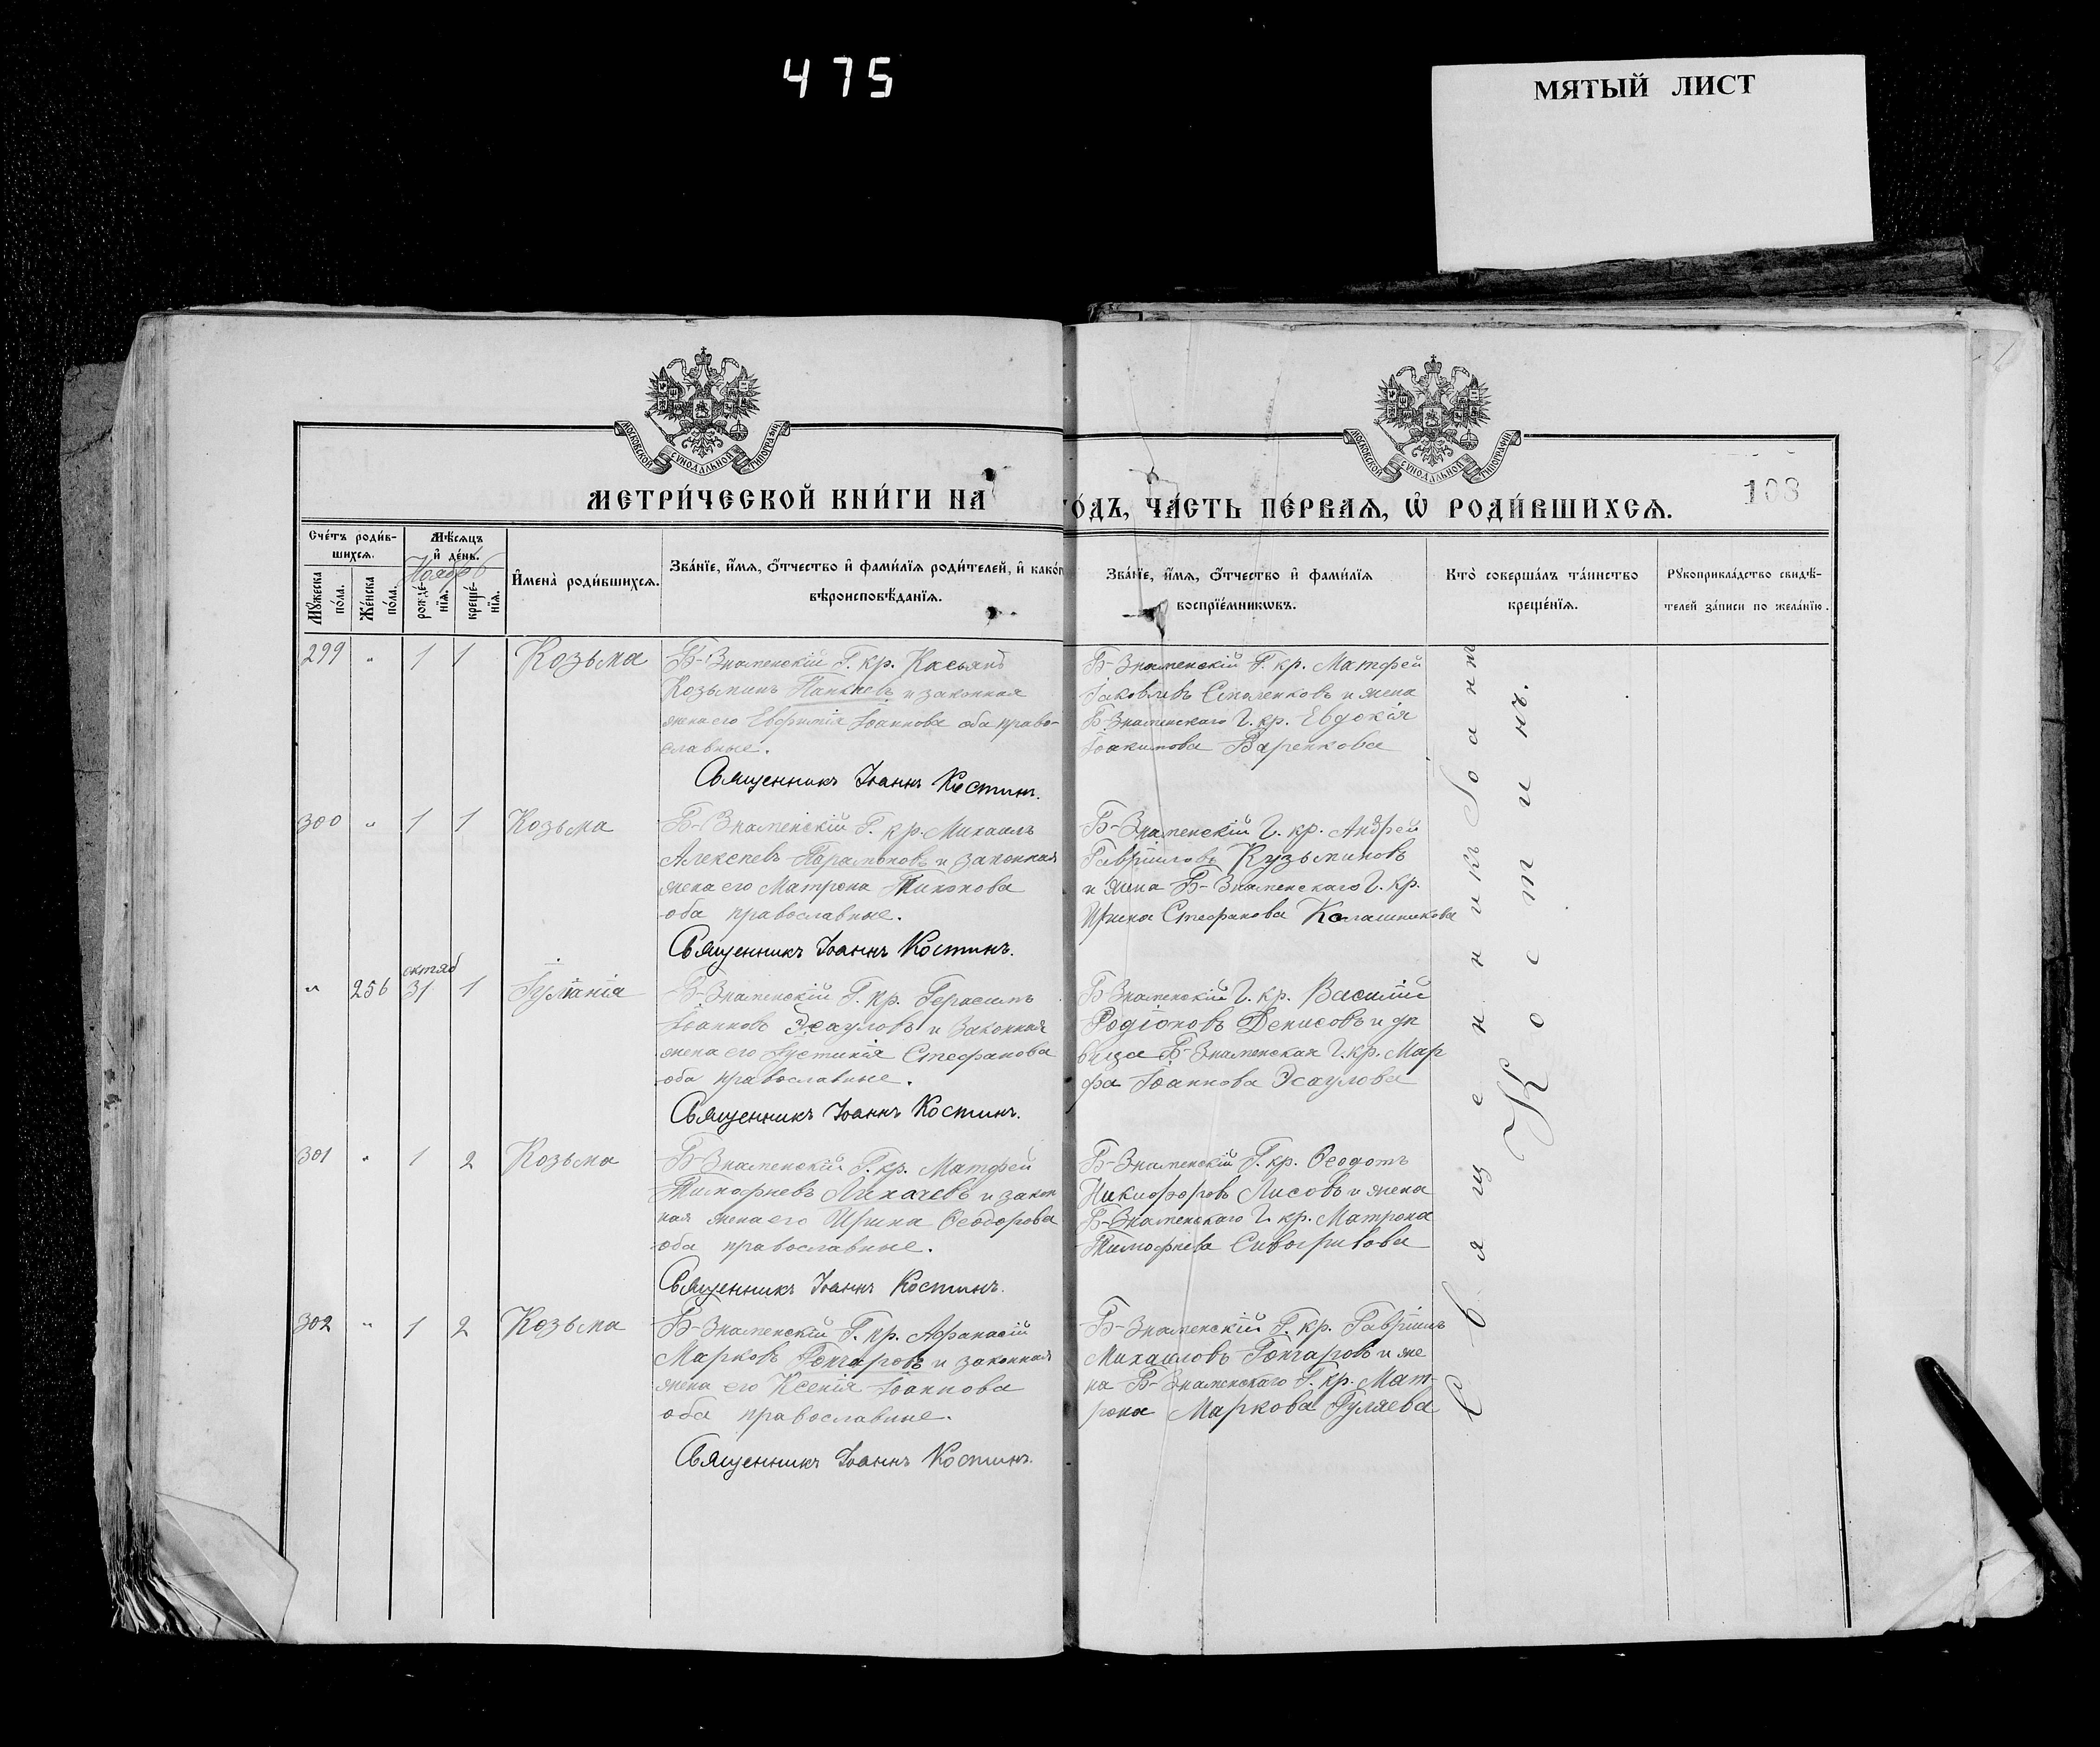 475
МЯТЫЙ ЛИСТ
МОСКОВСКОЙ СѴНОДАЛЬНОЙ ТИПОГРАФІИ
МОСКОВСКОЙ СѴНОДАЛЬНОЙ ТИПОГРАФІИ
МЕТРИ́ЧЕСКОЙ КНИ́ГИ НА
ГО́ДЪ, ЧА́СТЬ ПЕ́РВАЯ, Ѡ҆ РОДИ́ВШИХСЯ.
108
Сче́тъ роди́в-
шихся.
Мꙋжеска по́ла.
Же́нска по́ла.
Мѣсяцъ
и҆ де́нь.
Ноябрь
рожде́-
нїя.
креще́-
нїя.
И҆мена̀ роди́вшихся.
Зва́нїе, и҆́мя, ѻ҆́тчество и҆ фами́лїя роди́телей, и҆ како́г
вѣроисповѣ́данїя.
Зва́нїе, и҆́мя, ѻ҆́тчество и҆ фами́лїя
воспрїе́мникѡвъ.
Кто̀ соверша́лъ та́инство
креще́нїя.
Рꙋкоприкла́дство свидѣ́-
телей за́писи по жела́нїю.
299 " 1 1 Козьма
Б-Знаменскій Г. кр. Касьянъ
Козьминъ и законная
жена его Евфимія Іоаннова оба право-
славные.
Священникъ Іоаннъ Костинъ.
Б-Знаменскій Г. кр. Матфей
Іаковлевъ и жена
Б-Знаменскаго Г. кр. Евдокія
Іоакимова Варенкова
300 " 1 1 Козьма
Б-Знаменскій Г. кр. Михаилъ
Алексѣевъ Парамоновъ и законная
жена его Матрона Тихонова
оба православные.
Священникъ Іоаннъ Костинъ.
Б-Знаменскій Г. кр. Андрей
Гавріиловъ Кузьминовъ
и жена Б-Знаменскаго Г. кр.
Ирина Стефанова Калашникова
" 256 октяб 31 1 Іуліанія
Б-Знаменскій Г. кр. Герасимъ
Іоанновъ Эсауловъ и законная
жена его Іустинія Стефанова
оба православные.
Священникъ Іоаннъ Костинъ.
Б-Знаменскій Г. кр. Василій
Родіоновъ Денисовъ и дѣ
вица Б-Знаменская Г. кр. Мар
фа Іоаннова Эсаулова
301 " 1 2 Козьма
Б-Знаменскій Г. кр. Матфей
Тимофеевъ Лихачевъ и закон
ная жена его Ирина Ѳеодорова
оба православные.
Священникъ Іоаннъ Костинъ.
Б-Знаменскій Г. кр. Ѳеодотъ
Никифоровъ Лисовъ и жена
Б-Знаменскаго Г. кр. Матрона
Тимофеева Сивогривова
302 " 1 2 Козьма
Б-Знаменскій Г. кр. Афанасій
Марковъ Гончаровъ и законная
жена его Ксенія Іоаннова
оба православные.
Священникъ Іоаннъ Костинъ.
Б-Знаменскій Г. кр. Гавріилъ
Михаиловъ Гончаровъ и же
на Б-Знаменскаго Г. кр. Мат-
рона Маркова Гуляева
Священникъ Іоаннъ
Костинъ.